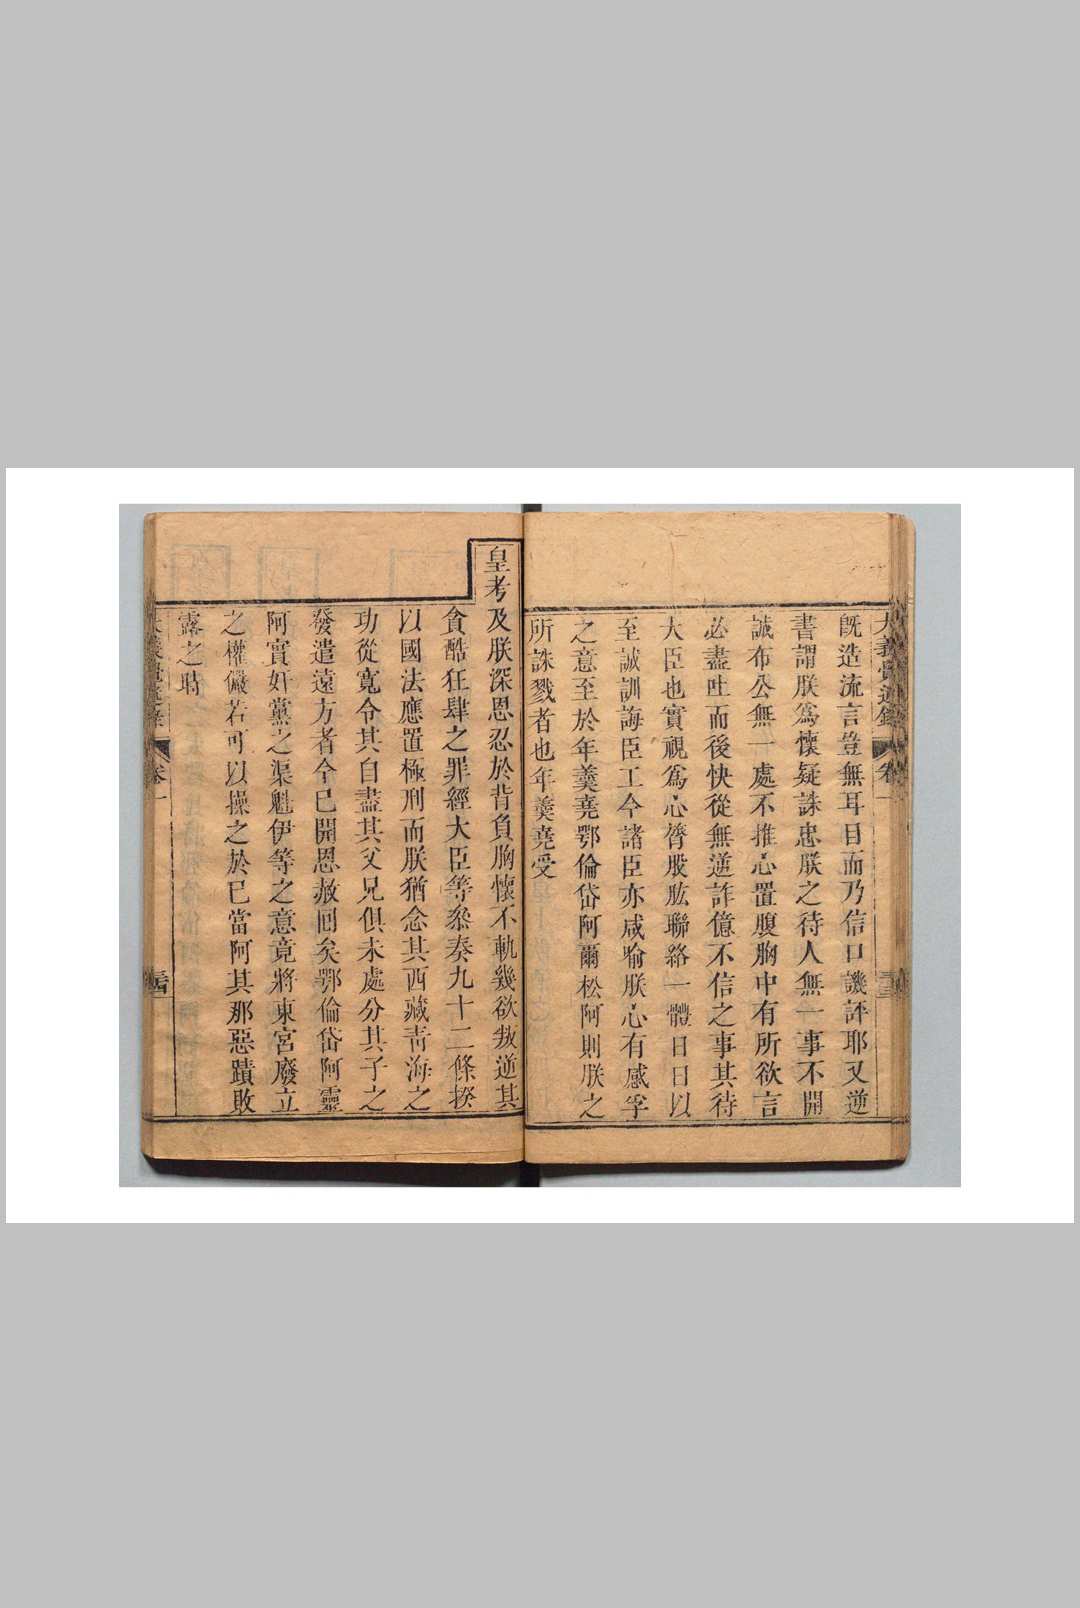 大義覺迷錄 卷一 三十三
旣造流言豈無耳目而乃信口譏評耶又逆
書謂朕爲懷疑誅忠朕之待人無一事不開
誠布公無一處不推心置腹胸中有所欲言
必盡吐而後快從無逆詐億不信之事其待
大臣也實視爲心膂股肱聯絡一體日日以
至誠訓誨臣工今諸臣亦咸喻朕心有感孚
之意至於年羹堯鄂倫岱阿爾松阿則朕之
所誅戮者也年羹堯受
皇考及朕深恩忍於背負胸懷不軌幾欲叛逆其
貪酷狂肆之罪經大臣等叅奏九十二條揆
以國法應置極刑而朕猶念其西藏靑海之
功從寬令其自盡其父兄俱未處分其子之
發遣遠方者今已開恩赦回矣鄂倫岱阿靈
阿實奸黨之渠魁伊等之意竟將東宮廢立
之權儼若可以操之於己當阿其那惡蹟敗
露之時
大義覺迷錄 卷一 三十四